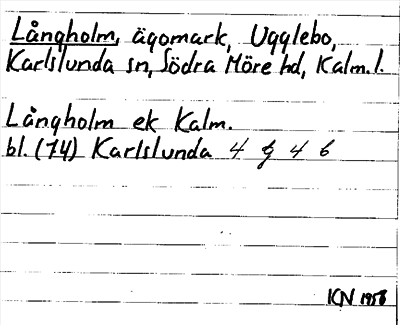 Långholm, ägomark, Ugglebo,
Karlslunda sn, Södra Möre hd, Kalm. l.
Långholm ek Kalm.
bl. (74) Karlslunda 4 g 4 b
KN 1956